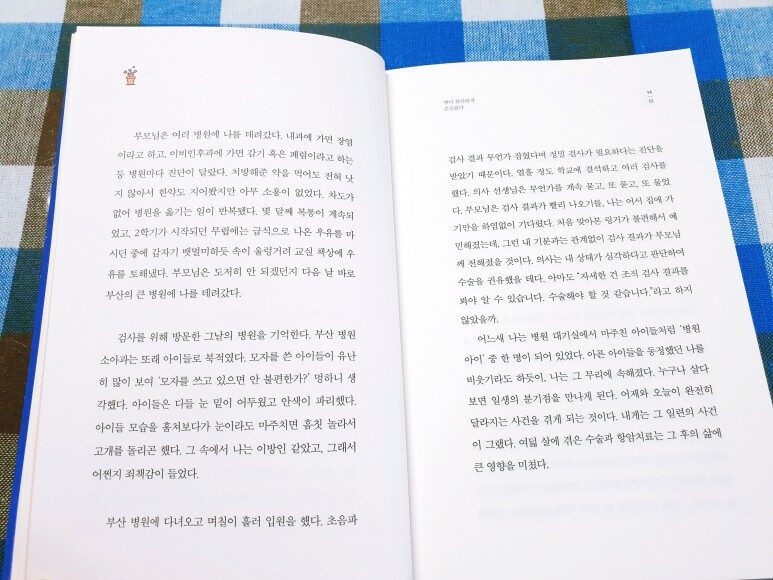 부모님은 여러 병원에 나를 데려갔다. 내과에 가면 장염
이라고 하고, 이비인후과에 가면 감기 혹은 폐렴이라고 하는
등 병원마다 진단이 달랐다. 처방해준 약을 먹어도 전혀 낫
지 않아서 한약도 지어봤지만 아무 소용이 없었다. 차도가
없어 병원을 옮기는 일이 반복됐다. 몇 달째 복통이 계속되
었고, 2학기가 시작되던 무렵에는 급식으로 나온 우유를 마
시던 중에 갑자기 뱃멀미하듯 속이 울렁거려 교실 책상에 우
유를 토해냈다. 부모님은 도저히 안 되겠던지 다음 날 바로
부산의 큰 병원에 나를 데려갔다.
검사를 위해 방문한 그날의 병원을 기억한다. 부산 병원
소아과는 또래 아이들로 북적였다. 모자를 쓴 아이들이 유난
히 많이 보여 '모자를 쓰고 있으면 안 불편한가?' 멍하니 생
각했다. 아이들은 다들 눈 밑이 어두웠고 안색이 파리했다.
아이들 모습을 훔쳐보다가 눈이라도 마주치면 흠칫 놀라서
고개를 돌리곤 했다. 그 속에서 나는 이방인 같았고, 그래서
어쩐지 죄책감이 들었다.
부산 병원에 다녀오고 며칠이 흘러 입원을 했다. 초음파
14
15
검사 결과 무언가 잡혔다며 정밀 검사가 필요하다는 진단을
받았기 때문이다. 열흘 정도 학교에 결석하고 여러 검사를
했다. 의사 선생님은 무언가를 계속 묻고, 또 묻고, 또 물었
다. 부모님은 검사 결과가 빨리 나오기를, 나는 어서 집에 가
기만을 하염없이 기다렸다. 처음 맞아본 링거가 불편해서 예
민해졌는데, 그런 내 기분과는 관계없이 검사 결과가 부모님
께 전해졌을 것이다. 의사는 내 상태가 심각하다고 판단하여
수술을 권유했을 테다. 아마도 "자세한 건 조직 검사 결과를
봐야 알 수 있습니다. 수술해야 할 것 같습니다."라고 하지
않았을까.
어느새 나는 병원 대기실에서 마주친 아이들처럼 '병원
아이' 중 한 명이 되어 있었다. 아픈 아이들을 동정했던 나를
비웃기라도 하듯이, 나는 그 무리에 속해졌다. 누구나 살다
보면 일생의 분기점을 만나게 된다. 어제와 오늘이 완전히
달라지는 사건을 겪게 되는 것이다. 내게는 그 일련의 사건
이 그랬다. 여덟 살에 겪은 수술과 항암치료는 그 후의 삶에
큰 영향을 미쳤다.